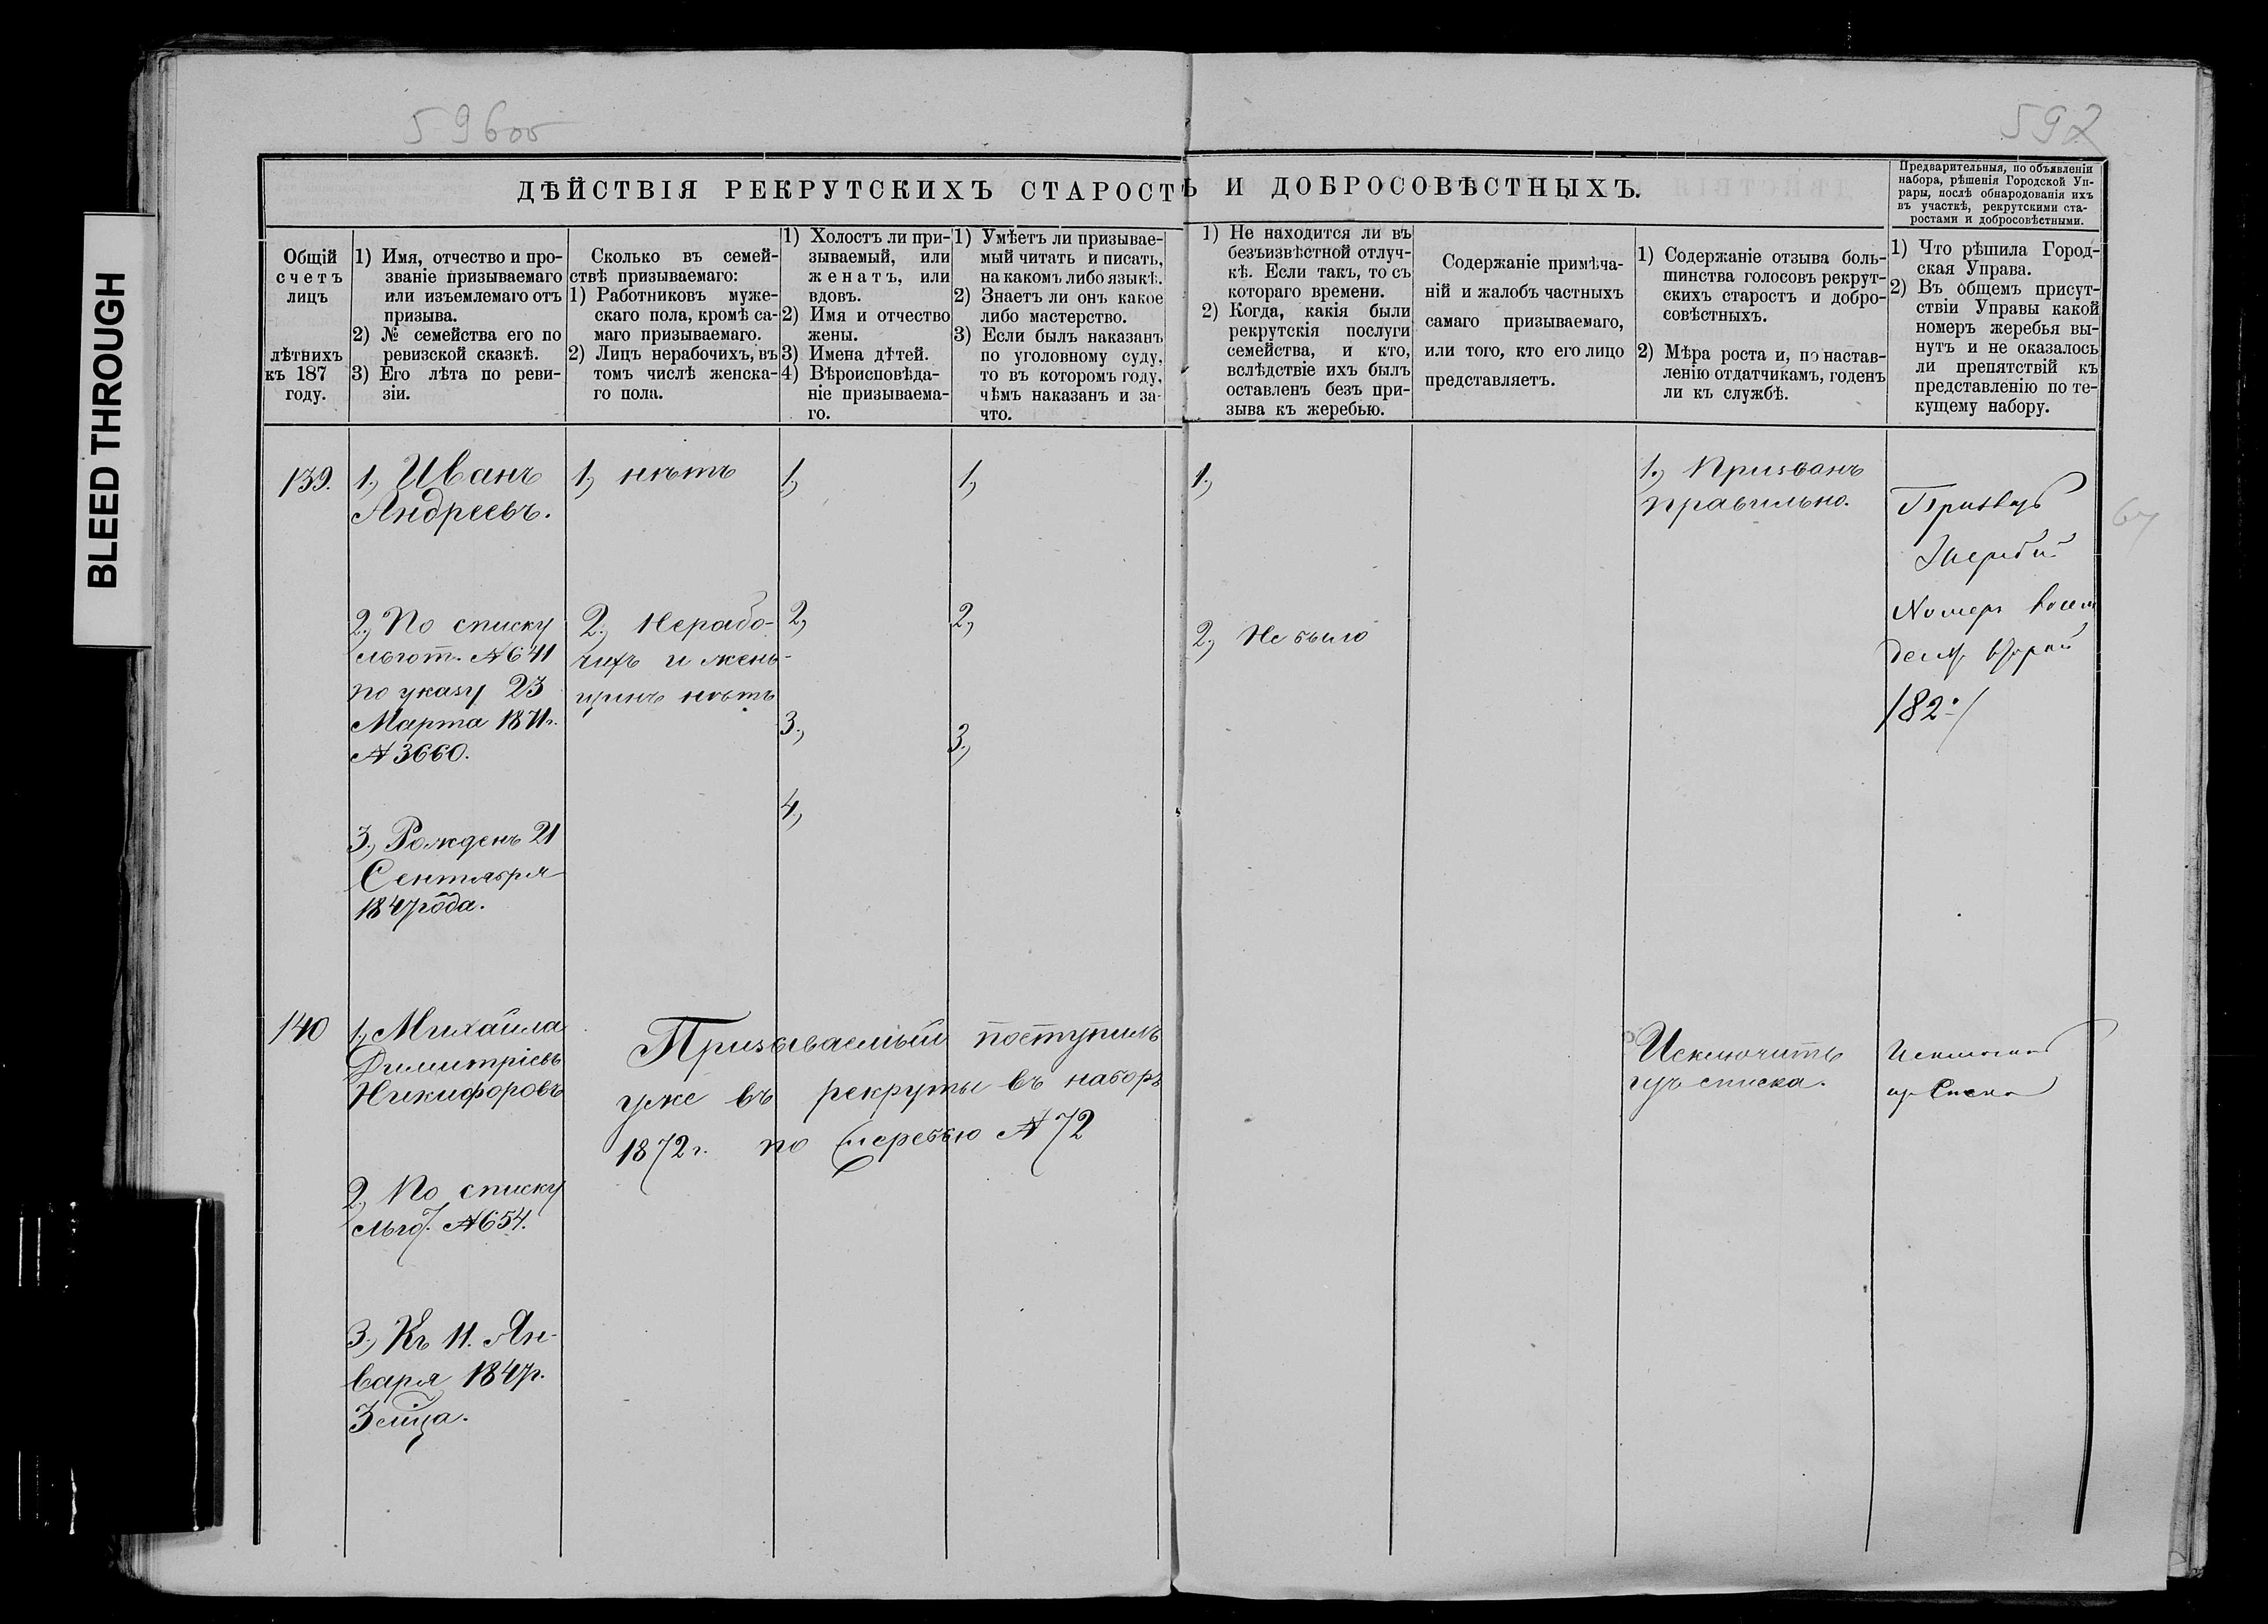 BLEED THROUGH
596об
597
ДѢЙСТВІЯ РЕКРУТСКИХЪ СТАРОСТЪ И ДОБРОСОВѢСТНЫХЪ.
Предварительныя, по объявленіи
набора, рѣшенія Городской Уп-
равы, послѣ обнародованія ихъ
въ участкѣ, рекрутскими ста-
ростами и добросовѣстными.
Общій
счетъ
лицъ
лѣтнихъ
къ 187
году.
1) Имя, отчество и про-
званіе призываемаго
или изъемлемаго отъ
призыва.
2) № семейства его по
ревизской сказкѣ.
3) Его лѣта по реви-
зіи.
Сколько въ семей-
ствѣ призываемаго:
1) Работниковъ муже-
скаго пола, кромѣ са-
маго призываемаго.
2) Лицъ нерабочихъ, въ
томъ числѣ женска-
го пола.
1) Холостъ ли при-
зываемый, или
женатъ, или
вдовъ.
2) Имя и отчество
жены.
3) Имена дѣтей.
4) Вѣроисповѣда-
ніе призываема-
го.
1) Умѣетъ ли призывае-
мый читать и писать,
на какомъ либо языкѣ.
2) Знаетъ ли онъ какое
либо мастерство.
3) Если былъ наказанъ
по уголовному суду,
то въ которомъ году,
чѣмъ наказанъ и за-
что.
1) Не находится ли въ
безъизвѣстной отлуч-
кѣ. Если такъ, то съ
котораго времени.
2) Когда, какія были
рекрутскія послуги
семейства, и кто,
вслѣдствіе ихъ былъ
оставленъ безъ при-
зыва къ жеребью.
Содержаніе примѣча-
ній и жалобъ частныхъ
самаго призываемаго,
или того, кто его лицо
представляетъ.
1) Содержаніе отзыва боль-
шинства голосовъ рекрут-
скихъ старостъ и добро-
совѣстныхъ.
2) Мѣра роста и, по настав-
ленію отдатчикамъ, годенъ
ли къ службѣ.
1) Что рѣшила Город-
ская Управа.
2) Въ общемъ присут-
ствіи Управы какой
номеръ жеребья вы-
нутъ и не оказалось
ли препятствій къ
представленію по те-
кущему набору.
139.
1, Иванъ
Андреевъ.
2, По списку
льгот. №641
по указу 23
Марта 1871г.
№3660.
3, Рожденъ 21
Сентября
1847 года.
1, нѣтъ
2, Нерабо-
чихъ и жен-
щинъ нѣтъ
1,
2,
3,
4,
1,
2,
3,
1,
2, Не было
1, Призванъ
правильно.
Жребій
Номеръ
/82/
67
140
1, Михаила
Димитріевъ
Никифоровъ
2, По списку
льгот. №654.
3, Къ 11. Ян-
варя 1847г.
3 мѣсяца.
Призываемый поступилъ
уже въ рекруты въ наборъ
1872г. по жеребью №72
Исключить
изъ списка.
из Списка